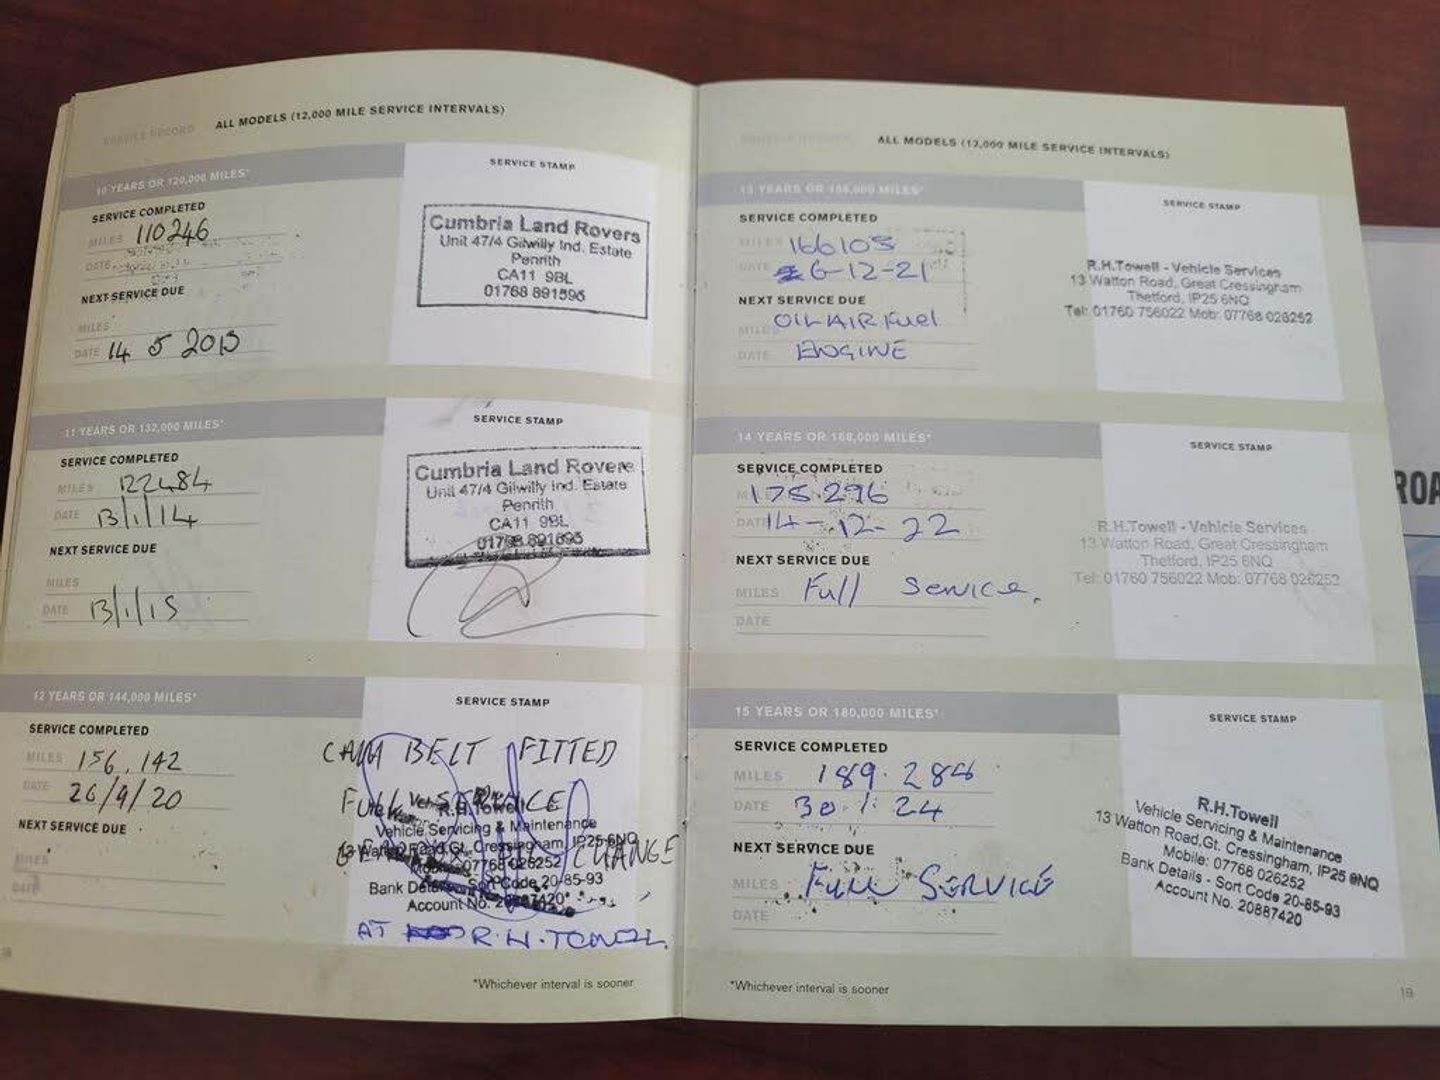 SERVICE RECORD
ALL MODELS (12,000 MILE SERVICE INTERVALS)
10 YEARS OR 120,000 MILES*
SERVICE STAMP
SERVICE COMPLETED
MILES 110246
DATE
NEXT SERVICE DUE
MILES
DATE 14 5 2013
Cumbria Land Rovers
Unit 47/4 Gilwilly Ind. Estate
Penrith
CA11 9BL
01768 891595
11 YEARS OR 132,000 MILES*
SERVICE STAMP
SERVICE COMPLETED
MILES 122484
DATE 13/1/14
NEXT SERVICE DUE
MILES
DATE 13/1/15
Cumbria Land Rovers
Unit 47/4 Gilwilly Ind. Estate
Penrith
CA11 9BL
01768 891595
12 YEARS OR 144,000 MILES*
SERVICE STAMP
SERVICE COMPLETED
MILES 156,142
DATE 26/9/20
NEXT SERVICE DUE
MILES
DATE
CAM BELT FITTED
FULL SERVICE
CHANGE
R.H.Towell
Vehicle Servicing & Maintenance
13 Watton Road, Gt. Cressingham, IP25 6NQ
07768 026252
Bank Details - Sort Code 20-85-93
Account No. 20887420
AT R.H.TOWELL
18
*Whichever interval is sooner
SERVICE RECORD
ALL MODELS (12,000 MILE SERVICE INTERVALS)
13 YEARS OR 156,000 MILES*
SERVICE STAMP
SERVICE COMPLETED
MILES 166105
DATE 6-12-21
NEXT SERVICE DUE
OIL AIR Fuel
MILES
DATE ENGINE
R.H.Towell - Vehicle Services
13 Watton Road, Great Cressingham
Thetford, IP25 6NQ
Tel: 01760 756022 Mob: 07768 026252
14 YEARS OR 168,000 MILES*
SERVICE STAMP
SERVICE COMPLETED
MILES 175.296
DATE 14-12-22
NEXT SERVICE DUE
MILES Full Service.
DATE
R.H.Towell - Vehicle Services
13 Watton Road, Great Cressingham
Thetford, IP25 6NQ
Tel: 01760 756022 Mob: 07768 026252
15 YEARS OR 180,000 MILES*
SERVICE STAMP
SERVICE COMPLETED
MILES 189.286
DATE 30.1.24
NEXT SERVICE DUE
MILES FULL SERVICE
DATE
R.H.Towell
Vehicle Servicing & Maintenance
13 Watton Road,Gt. Cressingham, IP25 6NQ
Mobile: 07768 026252
Bank Details - Sort Code 20-85-93
Account No. 20887420
*Whichever interval is sooner
19
ROA